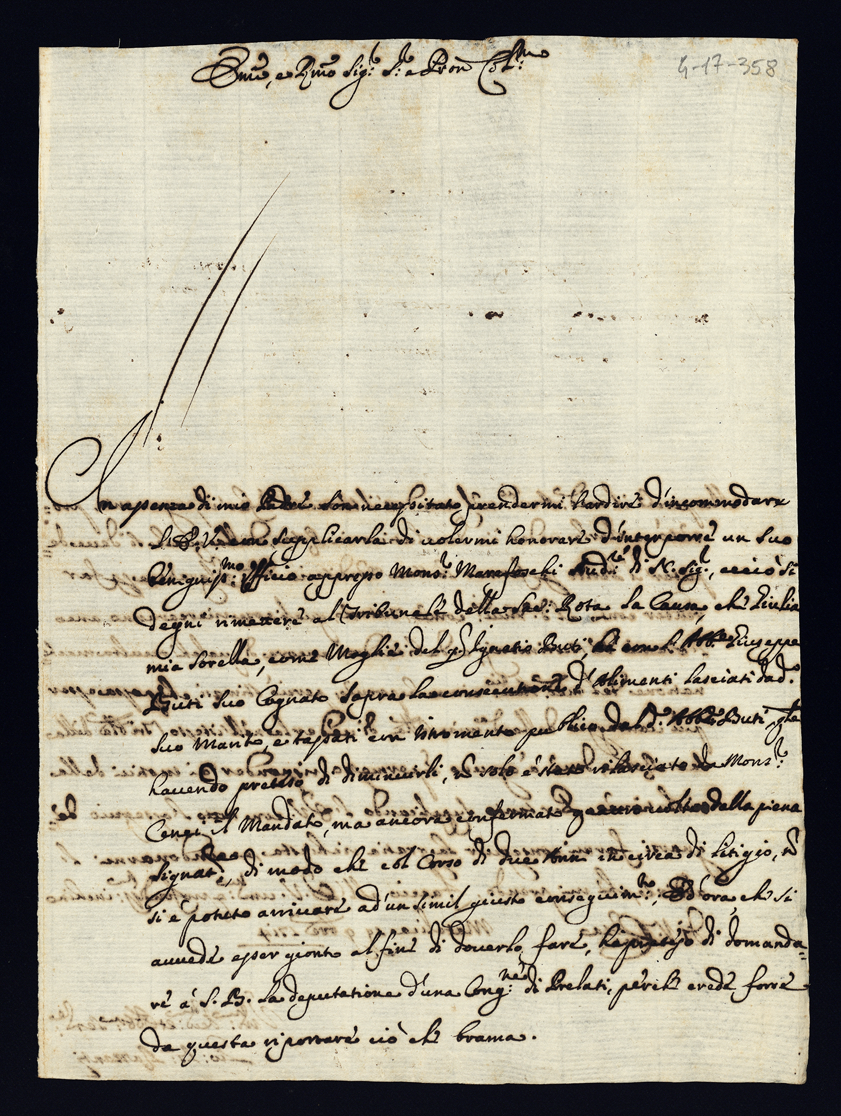 Em.o, e R.mo Sig.r S.r e Pron Col.mo
4-17-358
In asenza di mio Padre sono necessitato prendermi l'ardire d'incommodare
l'E.V. con supplicarla di volermi honorare d'interporre un suo
benignis.mo Officio appresso Mons.r Marefoschi Aud.re di N. Sig.re, acciò si
degni rimettere al Tribunale della Sac. Rota la Causa, che Giulia
mia sorella, come Moglie del q. Ignatio Buti, hà con l'Abb.e Giuseppe
Buti suo Cognato sopra la consecutione d'Alimenti lasciati da d.o
suo Marito, e tassati con Istromento publico da d.o Abb.e Buti, q.le
havendo preteso di diminuirli, n solo è stato rilasciato da Mons.r
Cenci il Mandato, ma ancora confermato della piena
Signat.a, di modo che col Corso di due Anni in circa di litigio, n
si è potuto arrivare ad un simil giusto conseguim.to, Ed ora che si
avvede esser gionto al fine di doverlo fare, hà preteso di domanda-
re à S. B. la deputatione d'una Cong.ne di Prelati, perche crede forse
da questa riportare ciò che brama.